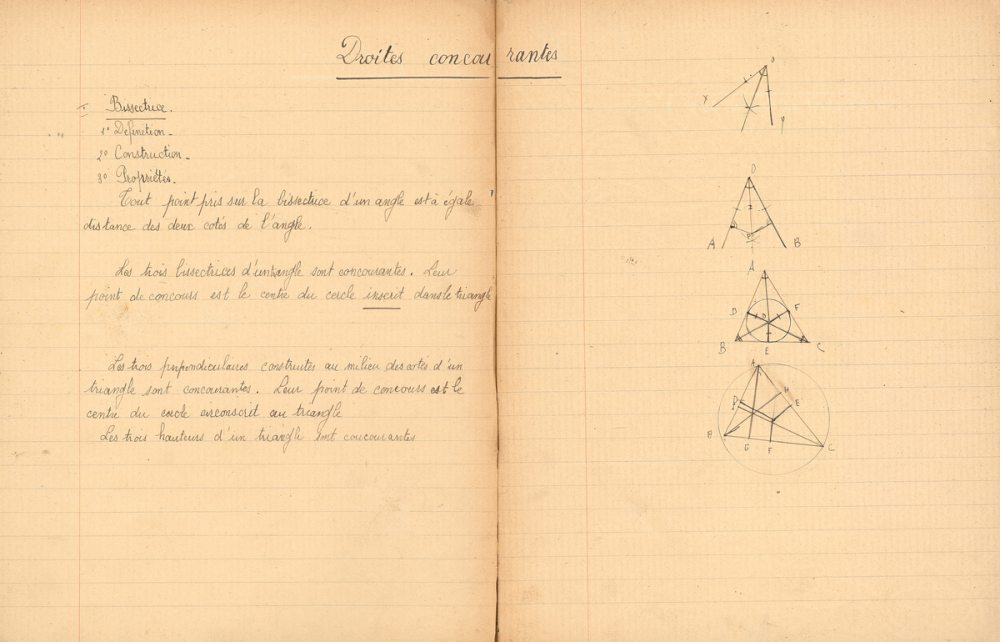 Droites concourantes
I Bissectrice.
1° Définition_
2° Construction_
3° Propriétés.
Tout point pris sur la bissectrice d'un angle est à égale
distance des deux cotés de l'angle.
Les trois bissectrices d'un triangle sont concourantes. Leur
point de concours est le centre du cercle inscrit dans le triangle
Les trois perpendiculaires construites au milieu des cotés d'un
triangle sont concourantes. Leur point de concours est le
centre du cercle circonscrit au triangle
Les trois hauteurs d'un triangle sont coucourantes
X
O
A
B
A
D
O
F
B
E
C
A
D
H
E
B
G
F
C